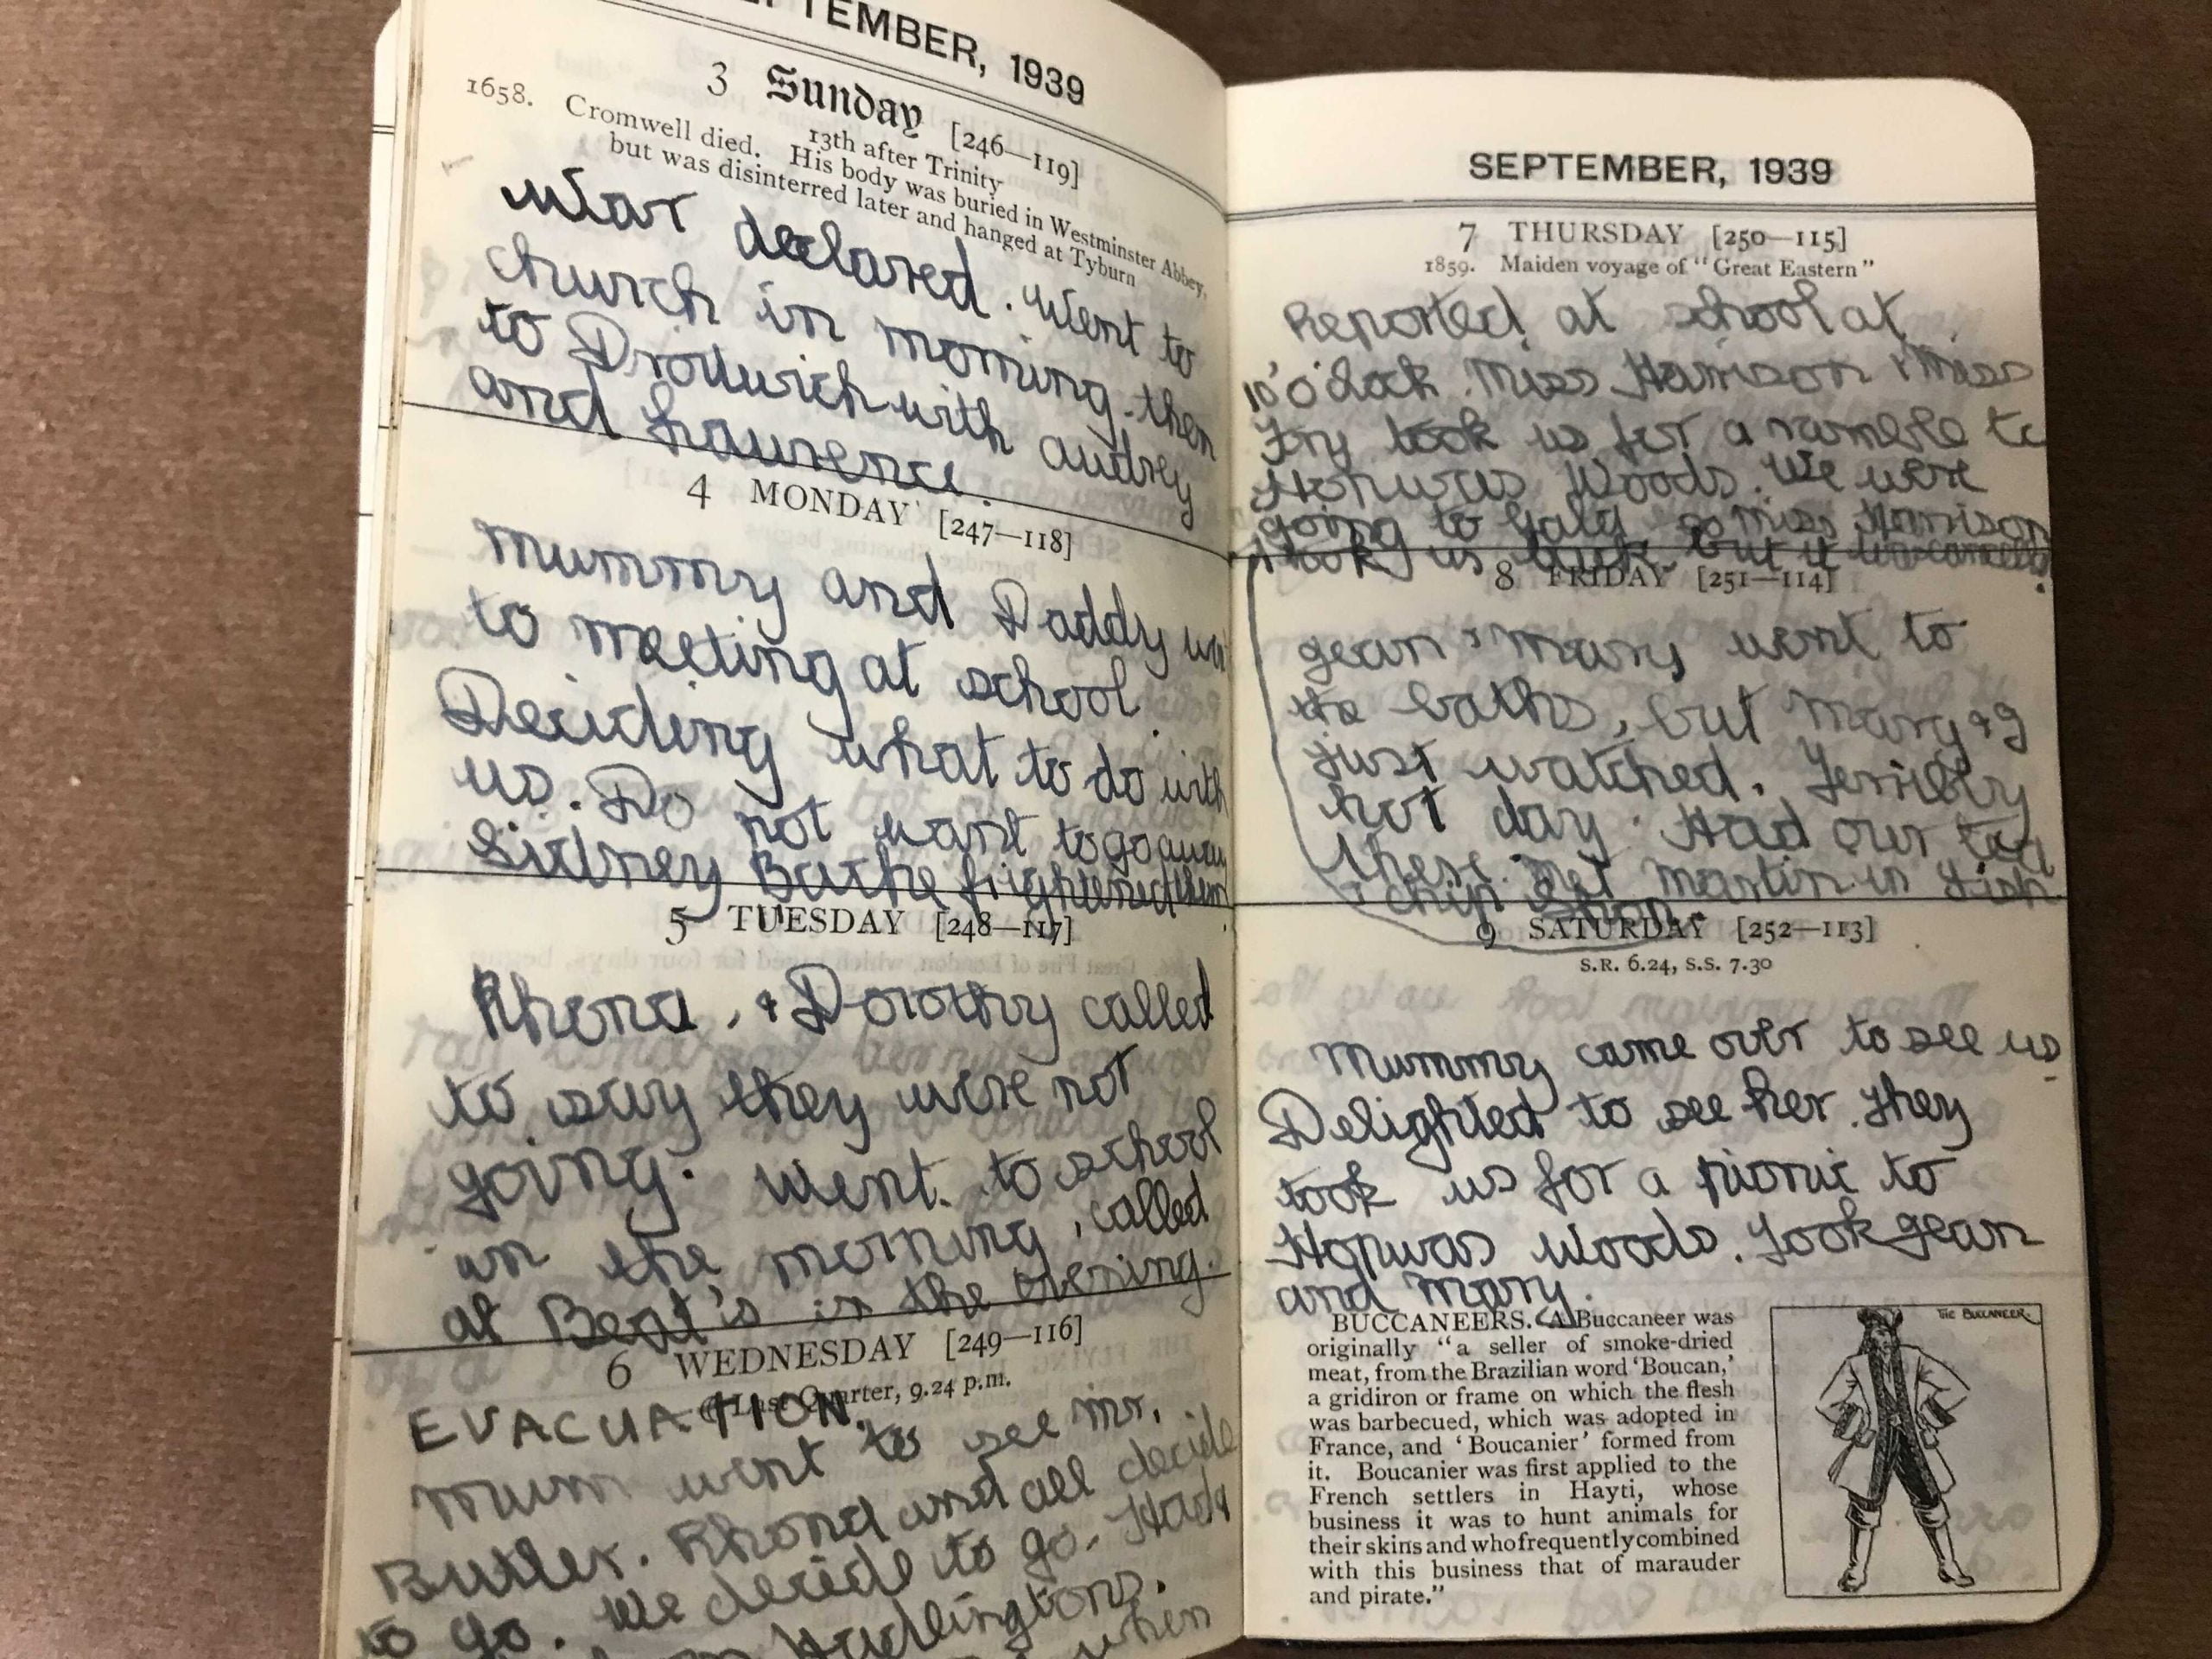 SEPTEMBER, 1939
3 Sunday [246—119]
13th after Trinity
1658. Cromwell died. His body was buried in Westminster Abbey,
but was disinterred later and hanged at Tyburn
War declared. Went to
church in morning. then
to Droitwich with audrey
and Laurence.
4 MONDAY [247—118]
Mummy and Daddy
to meeting at school.
Deciding what to do with
us. Do not want to go away
Sidney Barke frightened them
5 TUESDAY [248—117]
Rhona, & Dorothy called
to say they were not
going. Went to school
in the morning, called
at Beat's in the evening.
6 WEDNESDAY [249—116]
Last Quarter, 9.24 p.m.
EVACUATION.
Mum went to see Mr.
Butler. Rhona and all decide
to go. We decide to go. Had a
Hadlingtons.
when
SEPTEMBER, 1939
7 THURSDAY [250—115]
1859. Maiden voyage of "Great Eastern"
Reported at school at
10 o'clock. Miss Harrison & Miss
Fry took us for a ramble to
Hopwas Woods. We were
going to so Miss Harrison
took us back, but it
8 FRIDAY [251—114]
Jean & Mary went to
the baths, but Mary & I
just watched. Terribly
hot day. Had our tea
there. Met Martin in Fish
& chip shop.
9 SATURDAY [252—113]
S.R. 6.24, S.S. 7.30
Mummy came over to see us
Delighted to see her. They
took us for a picnic to
Hopwas Woods. Took Jean
and Mary.
BUCCANEERS. A Buccaneer was
originally "a seller of smoke-dried
meat, from the Brazilian word 'Boucan,'
a gridiron or frame on which the flesh
was barbecued, which was adopted in
France, and 'Boucanier' formed from
it. Boucanier was first applied to the
French settlers in Hayti, whose
business it was to hunt animals for
their skins and who frequently combined
with this business that of marauder
and pirate."
THE BUCCANEER.